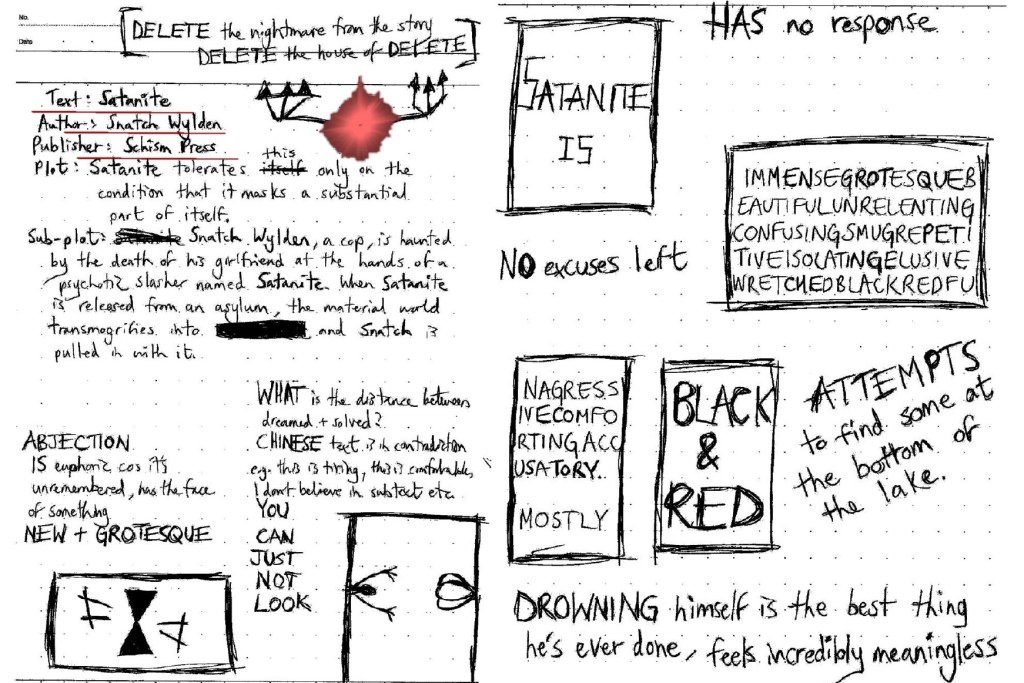 No.
Date
[DELETE the nightmare from the story
DELETE the house of DELETE]
Text: Satanite
Author: Snatch Wylden
Publisher: Schism Press
this
Plot: Satanite tolerates itself only on the
condition that it masks a substantial
part of itself.
Sub-plot: Satanite Snatch Wylden, a cop, is haunted
by the death of his girlfriend at the hands of a
psychotic slasher named Satanite. When Satanite
is released from an asylum, the material world
transmogrifies into and Snatch is
pulled in with it.
ABJECTION
IS euphoric cos it's
unremembered, has the face
of something
NEW + GROTESQUE
WHAT is the distance between
dreamed + solved?
CHINESE text is in contradiction
e.g. this is tiring, this is comfortable,
I don't believe in subtext etc.
YOU
CAN
JUST
NOT
LOOK
HAS no response
SATANITE
IS
NO excuses left
IMMENSEGROTESQUEB
EAUTIFULUNRELENTING
CONFUSINGSMUGREPETI
TIVEISOLATINGELUSIVE
WRETCHEDBLACKREDFU
NAGRESS
IVECOMFO
RTINGACC
USATORY.
MOSTLY
BLACK
&
RED
ATTEMPTS
to find some at
the bottom of
the lake.
DROWNING himself is the best thing
he's ever done, feels incredibly meaningless